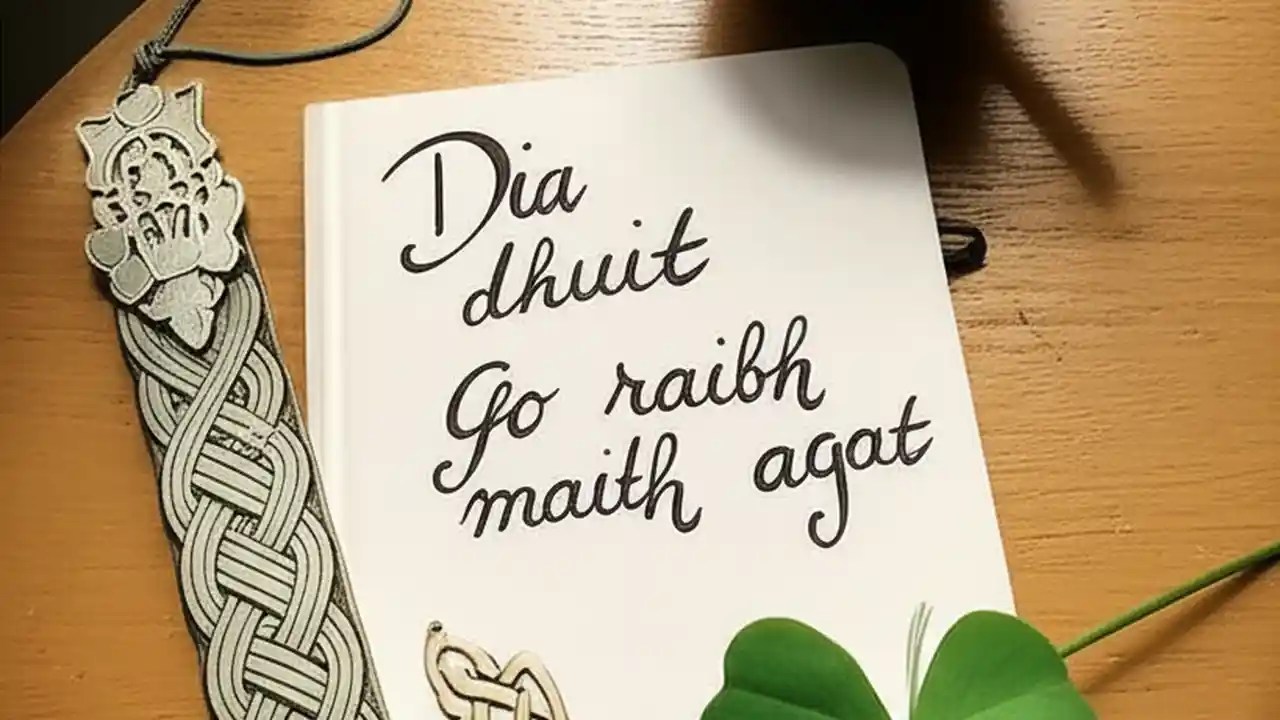 Dia
dhuit
Go raibh
maith agat